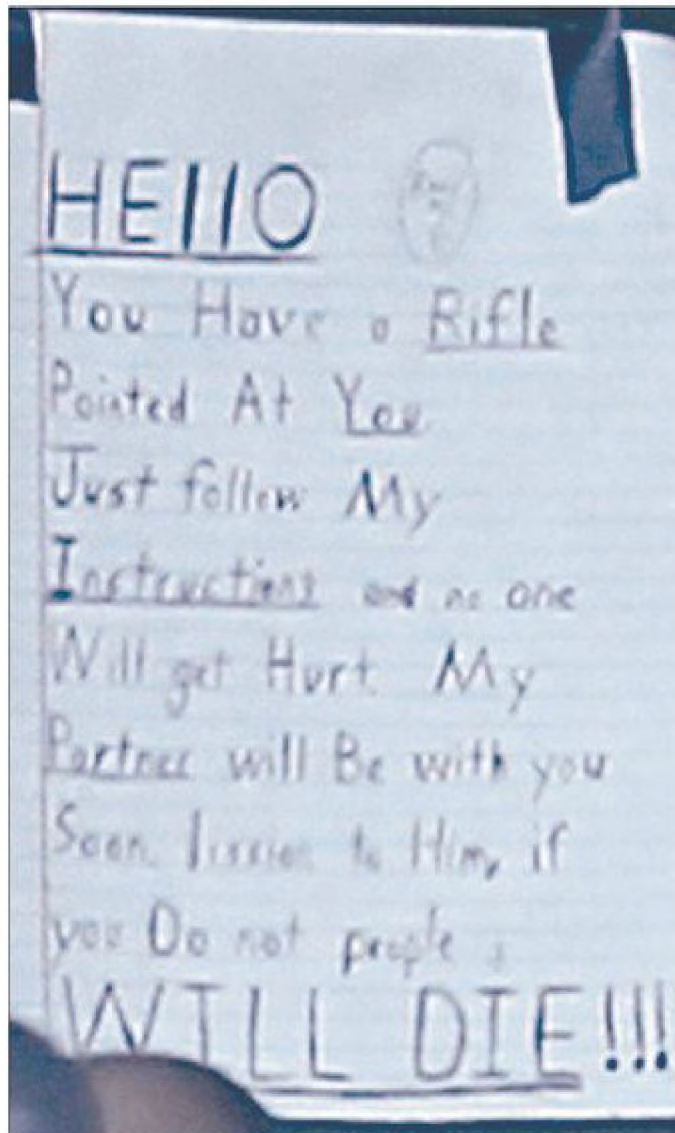 HEllO
You Have a Rifle
Pointed At You
Just follow My
Instructions and no one
Will get Hurt My
Partner will Be with you
Soon. to Him, if
you Do not people
WILL DIE!!!